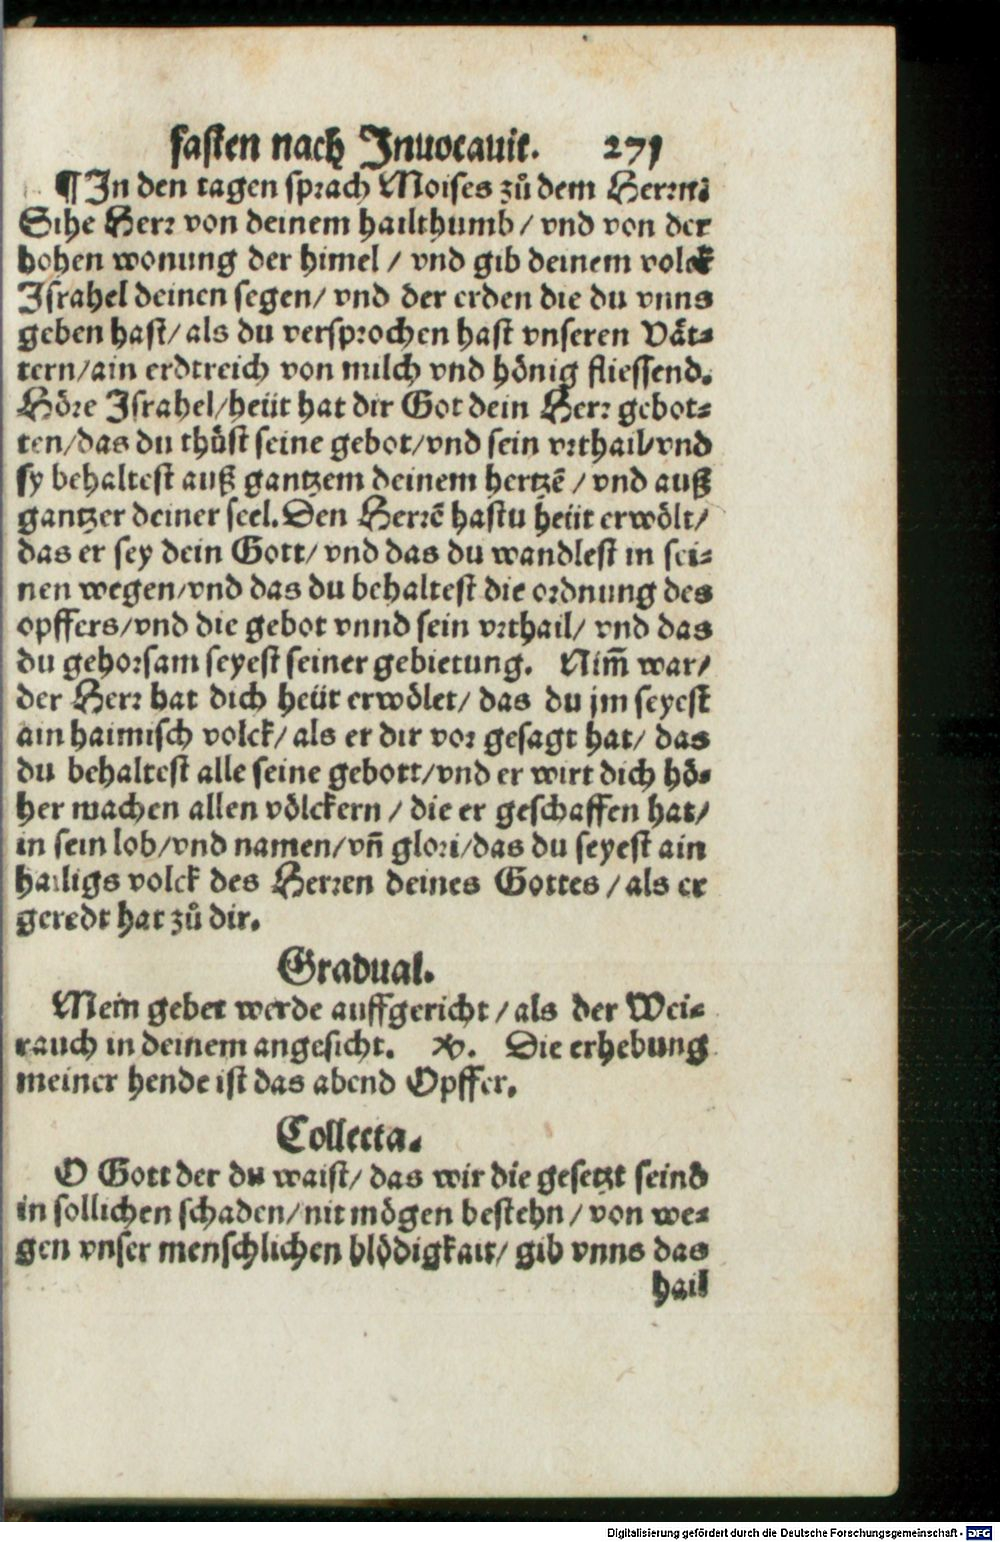 fasten nach Inuocauit. 271
¶ In den tagen sprach Moises zů dem Herrn:
Sihe Herr von deinem hailthumb / vnd von der
hohen wonung der himel / vnd gib deinem volck
Israhel deinen segen / vnd der erden die du vnns
geben hast / als du versprochen hast vnseren Våt⸗
tern / ain erdtreich von milch vnd hönig fliessend.
Höre Israhel / heüt hat dir Got dein Herr gebot⸗
ten / das du thůst seine gebot / vnd sein vrthail / vnd
sy behaltest auß gantzem deinem hertzē / vnd auß
gantzer deiner seel. Den Herrē hastu heüt erwölt /
das er sey dein Gott / vnd das du wandlest in sei⸗
nen wegen / vnd das du behaltest die ordnung des
opffers / vnd die gebot vnnd sein vrthail / vnd das
du gehorsam seyest seiner gebietung. Nim̄ war /
der Herr hat dich heüt erwölet / das du jm seyest
ain haimisch volck / als er dir vor gesagt hat / das
du behaltest alle seine gebott / vnd er wirt dich hö⸗
her machen allen völckern / die er geschaffen hat /
in sein lob / vnd namen / vn̄ glori / das du seyest ain
hailigs volck des Herren deines Gottes / als er
geredt hat zů dir.
Gradual.
Mein gebet werde auffgericht / als der Wei⸗
rauch in deinem angesicht. ℣. Die erhebung
meiner hende ist das abend Opffer.
Collecta.
O Gott der du waist / das wir die gesetzt seind
in sollichen schaden / nit mögen bestehn / von we⸗
gen vnser menschlichen blödigkait / gib vnns das
hail
Digitalisierung gefördert durch die Deutsche Forschungsgemeinschaft - DFG